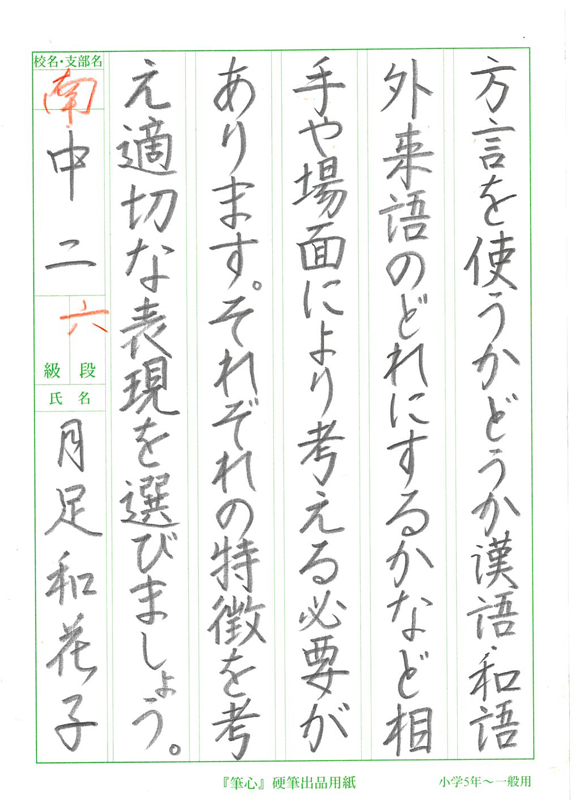 方言を使うかどうか漢語・和語
外来語のどれにするかなど相
手や場面により考える必要が
あります。それぞれの特徴を考
え適切な表現を選びましょう。
校名・支部名
南
中二
六
級 段
氏名
月足和花子
『筆心』硬筆出品用紙
小学5年〜一般用